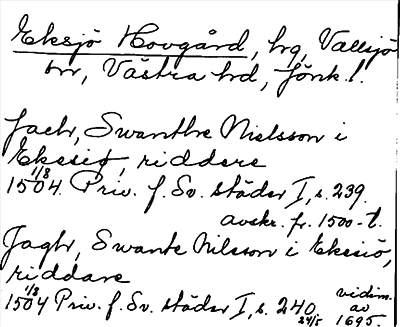 Eksjö Hovgård, hg, Vallsjö
sn, Västra hd, Jönk.l.
Jaehr, Swanthe Nielsson i
Ekesiø, riddere
1/8
1504. Priv. f. Sv. städer I, s. 239.
avskr. fr. 1500-t.
Jaghr, Swante Nilsson i Ekesiö,
riddare
1/8
1504 Priv. f. Sv. städer I, s. 240
24/5
vidim.
av
1695.